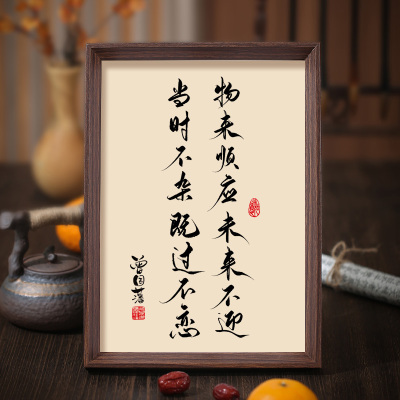 物来顺应未来不迎
当时不杂既过不恋
曾国藩